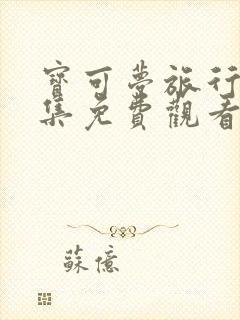 寶可夢旅行
集免費觀看
蘇億